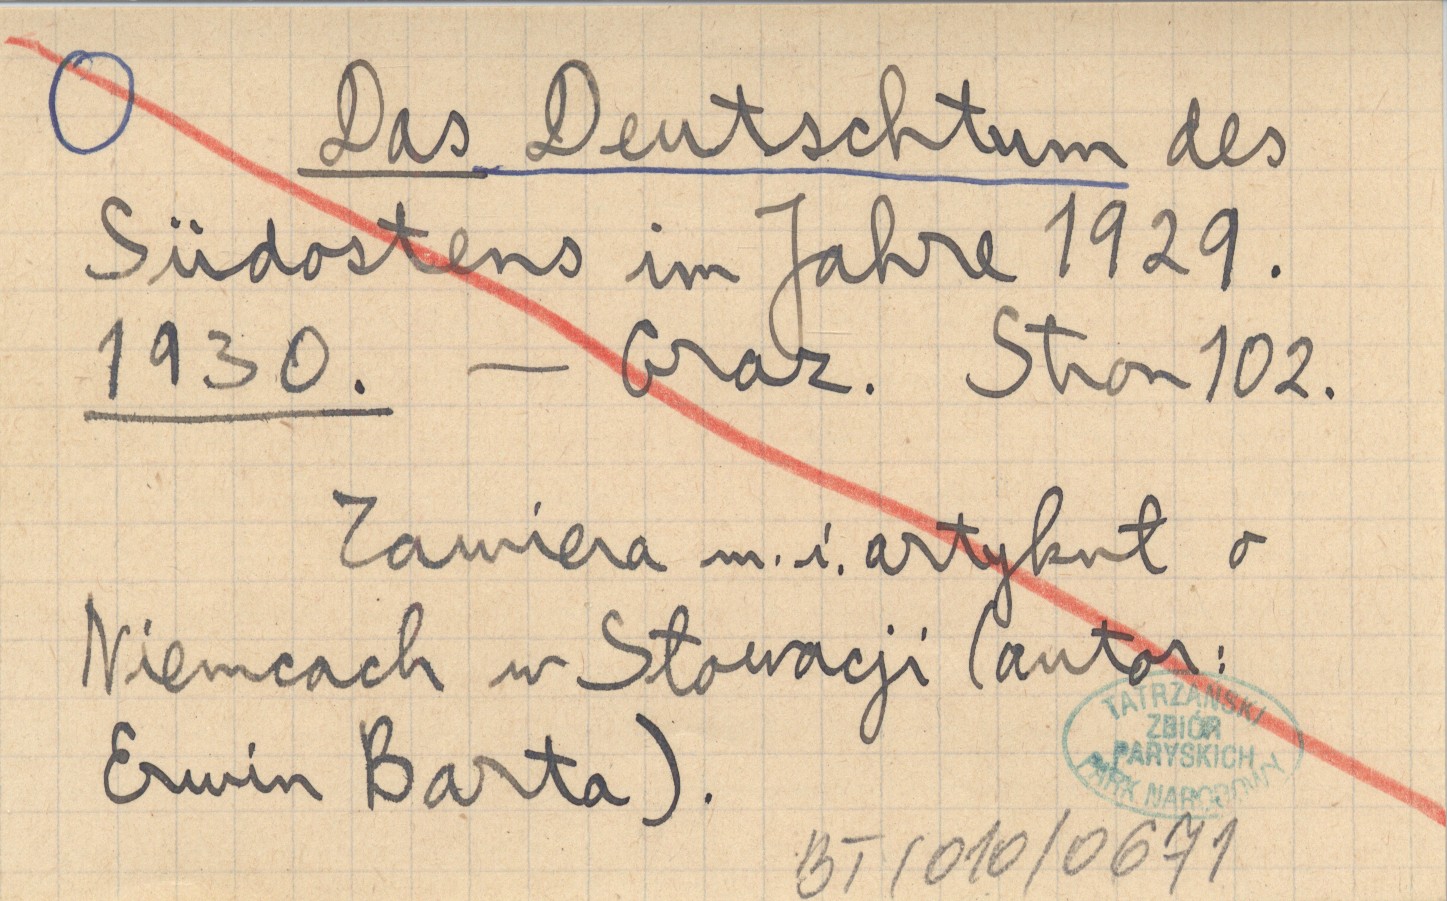 Das Deutschtum des
Südostens im Jahre 1929.
1930. — Graz. Stron 102.
Zawiera m.i. artykuł o
Niemcach w Słowacji (autor:
Erwin Barta).
TATRZAŃSKI
ZBIÓR
PARYSKICH
PARK NARODOWY
BT/010/0671